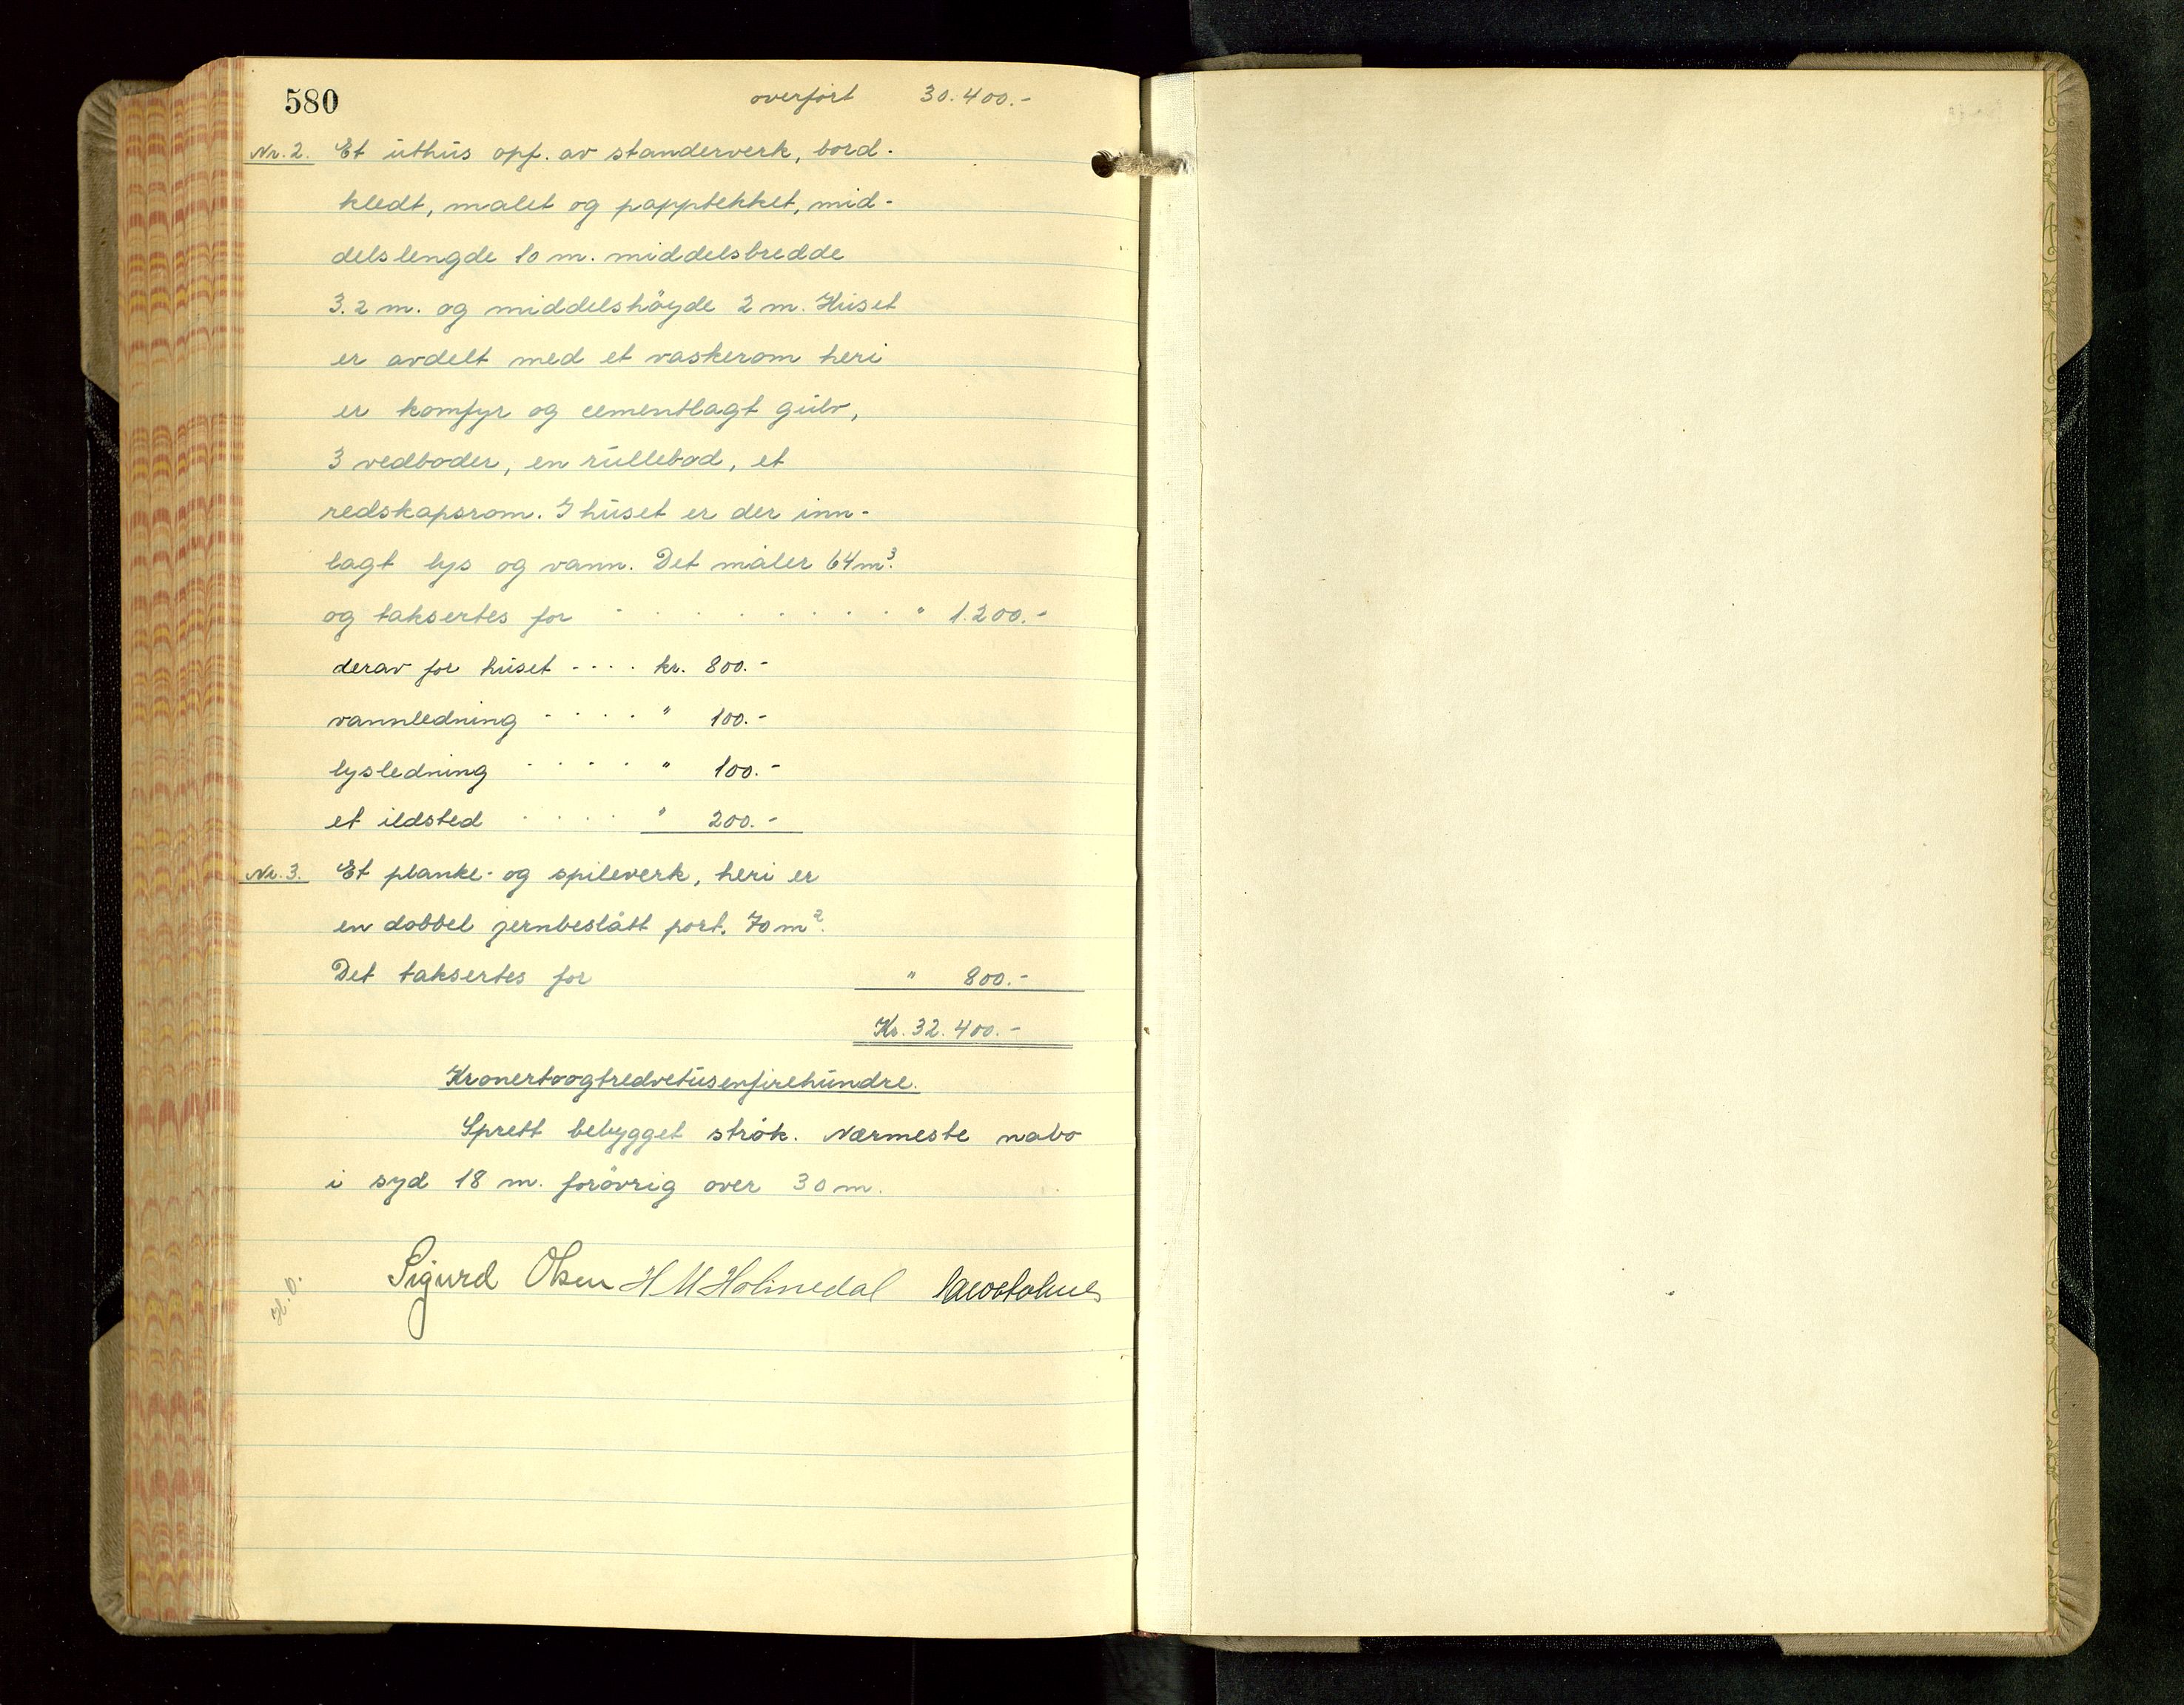 580 overført 30.400.-
Nr. 2. Et uthus opf. av standerverk, bord-
kledt, malet og papptekket, mid-
delslengde 10 m. middelsbredde
3.2 m. og middelshöyde 2 m. Huset
er avdelt med et vaskerom heri
er komfyr og cementlagt gulv,
3 vedboder, en rullebod, et
redskapsrom. I huset er der inn-
lagt lys og vann. Det måler 64 m³.
og taksertes for - . . . . . . . . " 1.200.-
derav for huset - - . . kr. 800.-
vannledning - . . . . " 100.-
lysledning . . . . . " 100.-
et ildsted . . . . . " 200.-
Nr. 3. Et planke- og spileverk, heri er
en dobbel jernbeslått port. 70 m².
Det taksertes for " 800.-
Kr. 32.400.-
Kronertoogtredvetusenfirehundre.
Sprett bebygget strök. Nærmeste nabo
i syd 18 m. forövrig over 30 m.
Sigurd Olsen H M Holmedal
H.O.